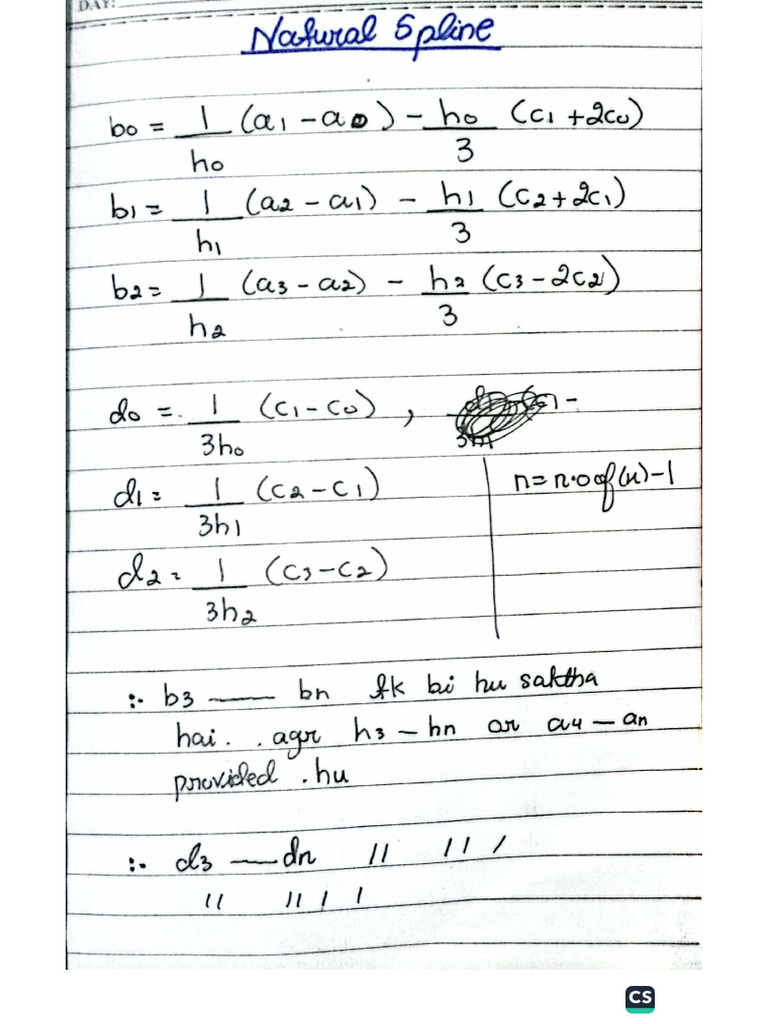 DAY:
Natural Spline
b0 = 1/h0 (a1 - a0) - h0/3 (c1 + 2c0)
b1 = 1/h1 (a2 - a1) - h1/3 (c2 + 2c1)
b2 = 1/h2 (a3 - a2) - h2/3 (c3 - 2c2)
d0 = 1/3h0 (c1 - c0) ,
d1 = 1/3h1 (c2 - c1)
n = n.o of (x) - 1
d2 = 1/3h2 (c3 - c2)
:- b3 — bn tk bi hu saktha
hai . . agr h3 - hn or a4 - an
provided . hu
:- d3 — dn // // /
// // / /
CS